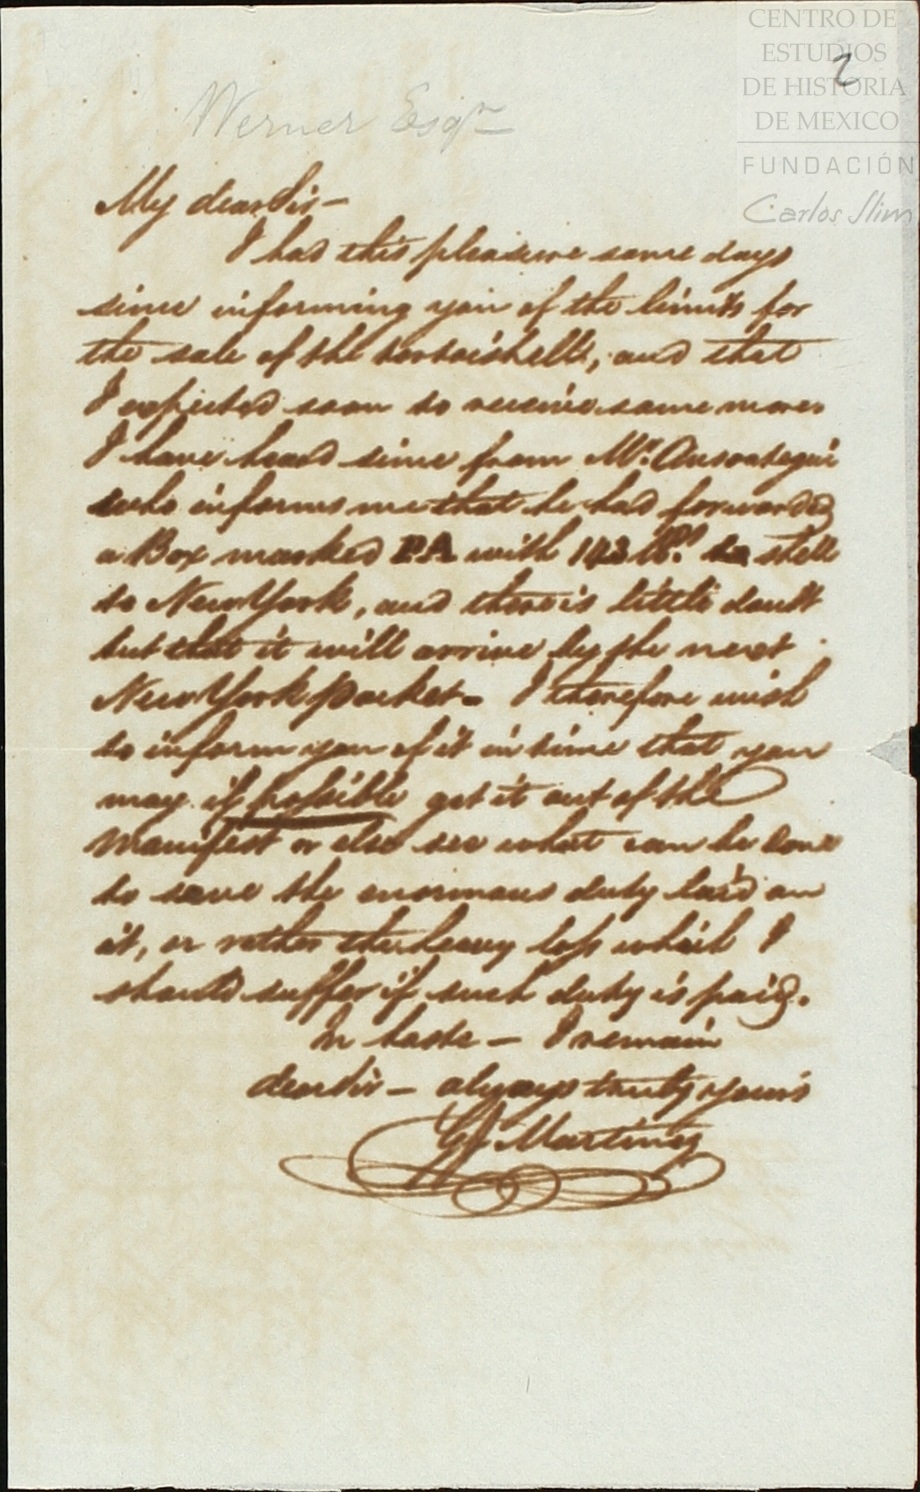 CENTRO DE
ESTUDIOS
DE HISTORIA
DE MEXICO
FUNDACIÓN
Carlos Slim
2
Werner Esqr
My dear Sir —
I had this pleasure some days
since informing you of the limits for
the sale of the tortoishells, and that
I expected soon to receive some more
I have heard since from Mr. Ansoategui
who informs me that he had forwarded
a Box marked PA with 143 lbs. shell
to New York, and there is little doubt
but that it will arrive by the next
New York packet. I therefore wish
to inform you of it in time that you
may if possible get it out of the
manifest or else see what can be done
to save the enormous duty laid on
it, or rather the heavy loss which I
should suffer if such duty is paid.
In haste — I remain
dear Sir — always truly yours
Martinez